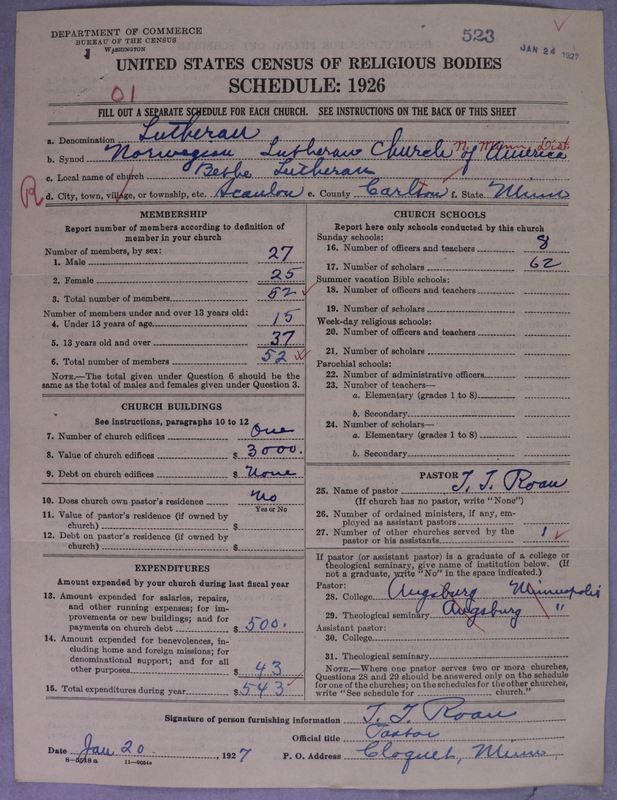 DEPARTMENT OF COMMERCE
BUREAU OF THE CENSUS
WASHINGTON
523
JAN 24 1927
UNITED STATES CENSUS OF RELIGIOUS BODIES
SCHEDULE: 1926
01
FILL OUT A SEPARATE SCHEDULE FOR EACH CHURCH. SEE INSTRUCTIONS ON THE BACK OF THIS SHEET
a. Denomination Lutheran
b. Synod Norwegian Lutheran Church of America N. Minn. Dist.
c. Local name of church Bethe Lutheran
R d. City, town, village, or township, etc. Scanlon e. County Carlton f. State Minn
MEMBERSHIP
Report number of members according to definition of
member in your church
Number of members, by sex:
1. Male 27
2. Female 25
3. Total number of members 52
Number of members under and over 13 years old:
4. Under 13 years of age 15
5. 13 years old and over 37
6. Total number of members 52
NOTE.—The total given under Question 6 should be the
same as the total of males and females given under Question 3.
CHURCH BUILDINGS
See instructions, paragraphs 10 to 12
7. Number of church edifices One
8. Value of church edifices $ 3000.
9. Debt on church edifices $ None
10. Does church own pastor's residence No
Yes or No
11. Value of pastor's residence (if owned by
church) $
12. Debt on pastor's residence (if owned by
church) $
EXPENDITURES
Amount expended by your church during last fiscal year
13. Amount expended for salaries, repairs,
and other running expenses; for im-
provements or new buildings; and for
payments on church debt $ 500.
14. Amount expended for benevolences, in-
cluding home and foreign missions; for
denominational support; and for all
other purposes $ 43
15. Total expenditures during year $ 543
CHURCH SCHOOLS
Report here only schools conducted by this church
Sunday schools:
16. Number of officers and teachers 8
17. Number of scholars 62
Summer vacation Bible schools:
18. Number of officers and teachers
19. Number of scholars
Week-day religious schools:
20. Number of officers and teachers
21. Number of scholars
Parochial schools:
22. Number of administrative officers
23. Number of teachers—
a. Elementary (grades 1 to 8)
b. Secondary
24. Number of scholars—
a. Elementary (grades 1 to 8)
b. Secondary
PASTOR
25. Name of pastor T. T. Roan
(If church has no pastor, write "None")
26. Number of ordained ministers, if any, em-
ployed as assistant pastors
27. Number of other churches served by the
pastor or his assistants 1
If pastor (or assistant pastor) is a graduate of a college or
theological seminary, give name of institution below. (If
not a graduate, write "No" in the space indicated.)
Pastor:
28. College Augsburg Minneapolis
29. Theological seminary Augsburg "
Assistant pastor:
30. College
31. Theological seminary
NOTE.—Where one pastor serves two or more churches,
Questions 28 and 29 should be answered only on the schedule
for one of the churches; on the schedules for the other churches,
write "See schedule for ______ church."
Signature of person furnishing information T. T. Roan
Official title Pastor
Date Jan 20, 1927 P. O. Address Cloquet, Minn.
8—5518a 11—9024